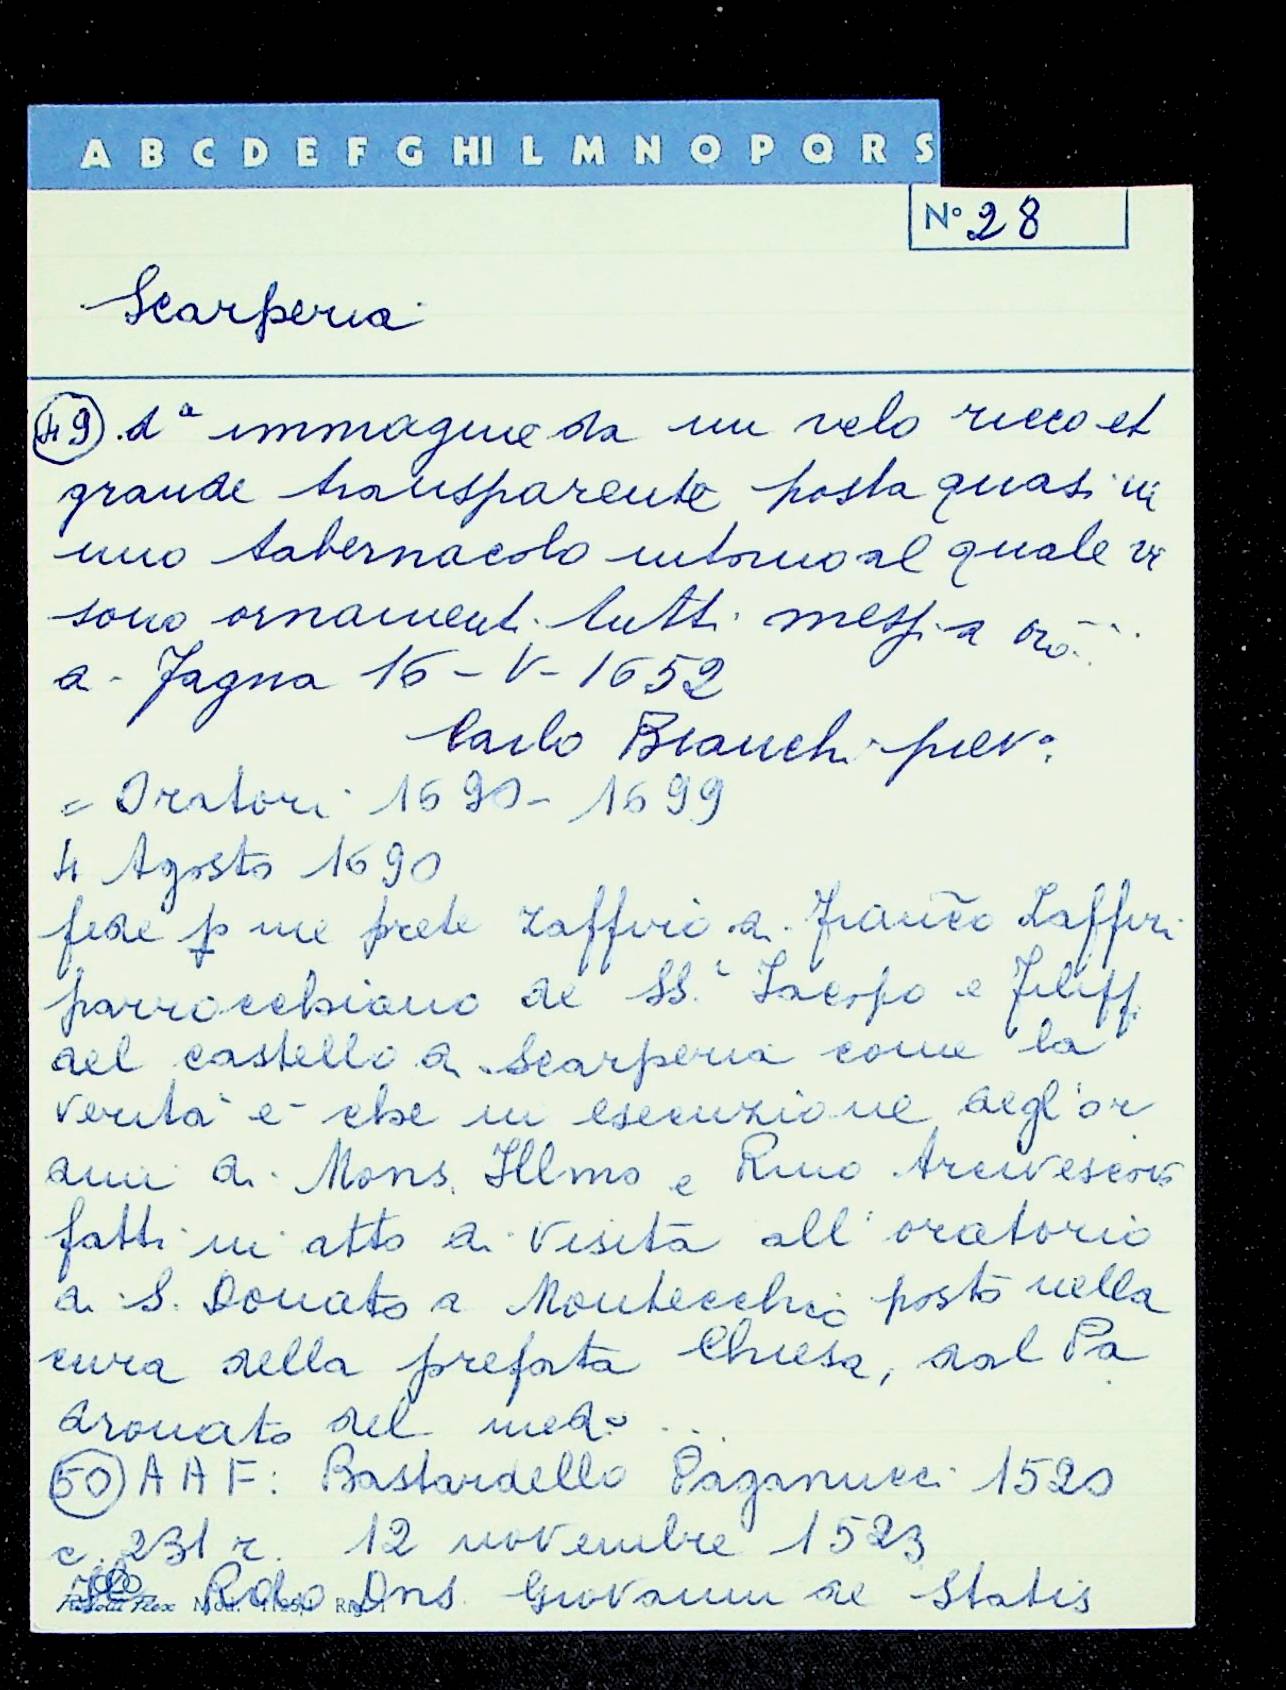 A B C D E F G HI L M N O P Q R S
N° 28
Scarperia
49 dª immagine da un velo ricco et
grande transparente posta quasi in
uno tabernacolo intorno al quale vi
sono ornamenti tutti messi a oro
a. Fagna 16-V-1652
Carlo Bianchi piev°
= Oratori 1690-1699
4 Agosto 1690
fede p me prete Zaffirio di Franco Zaffiri
parrocchiano de SS.i Iacopo e Filippo
del castello di Scarperia come la
verità è che in esecuzione degl'or
dini di Mons. Illmo e Rmo Arcivescovo
fatti in atto di visita all'oratorio
di S. Donato a Montecchio posto nella
cura della prefata Chiesa, dal Pa
dronato del med° ...
50 A A F: Bastardello Paganucci 1520
c. 231 r. 12 novembre 1523
Rdo Dns Giovanni de Statis